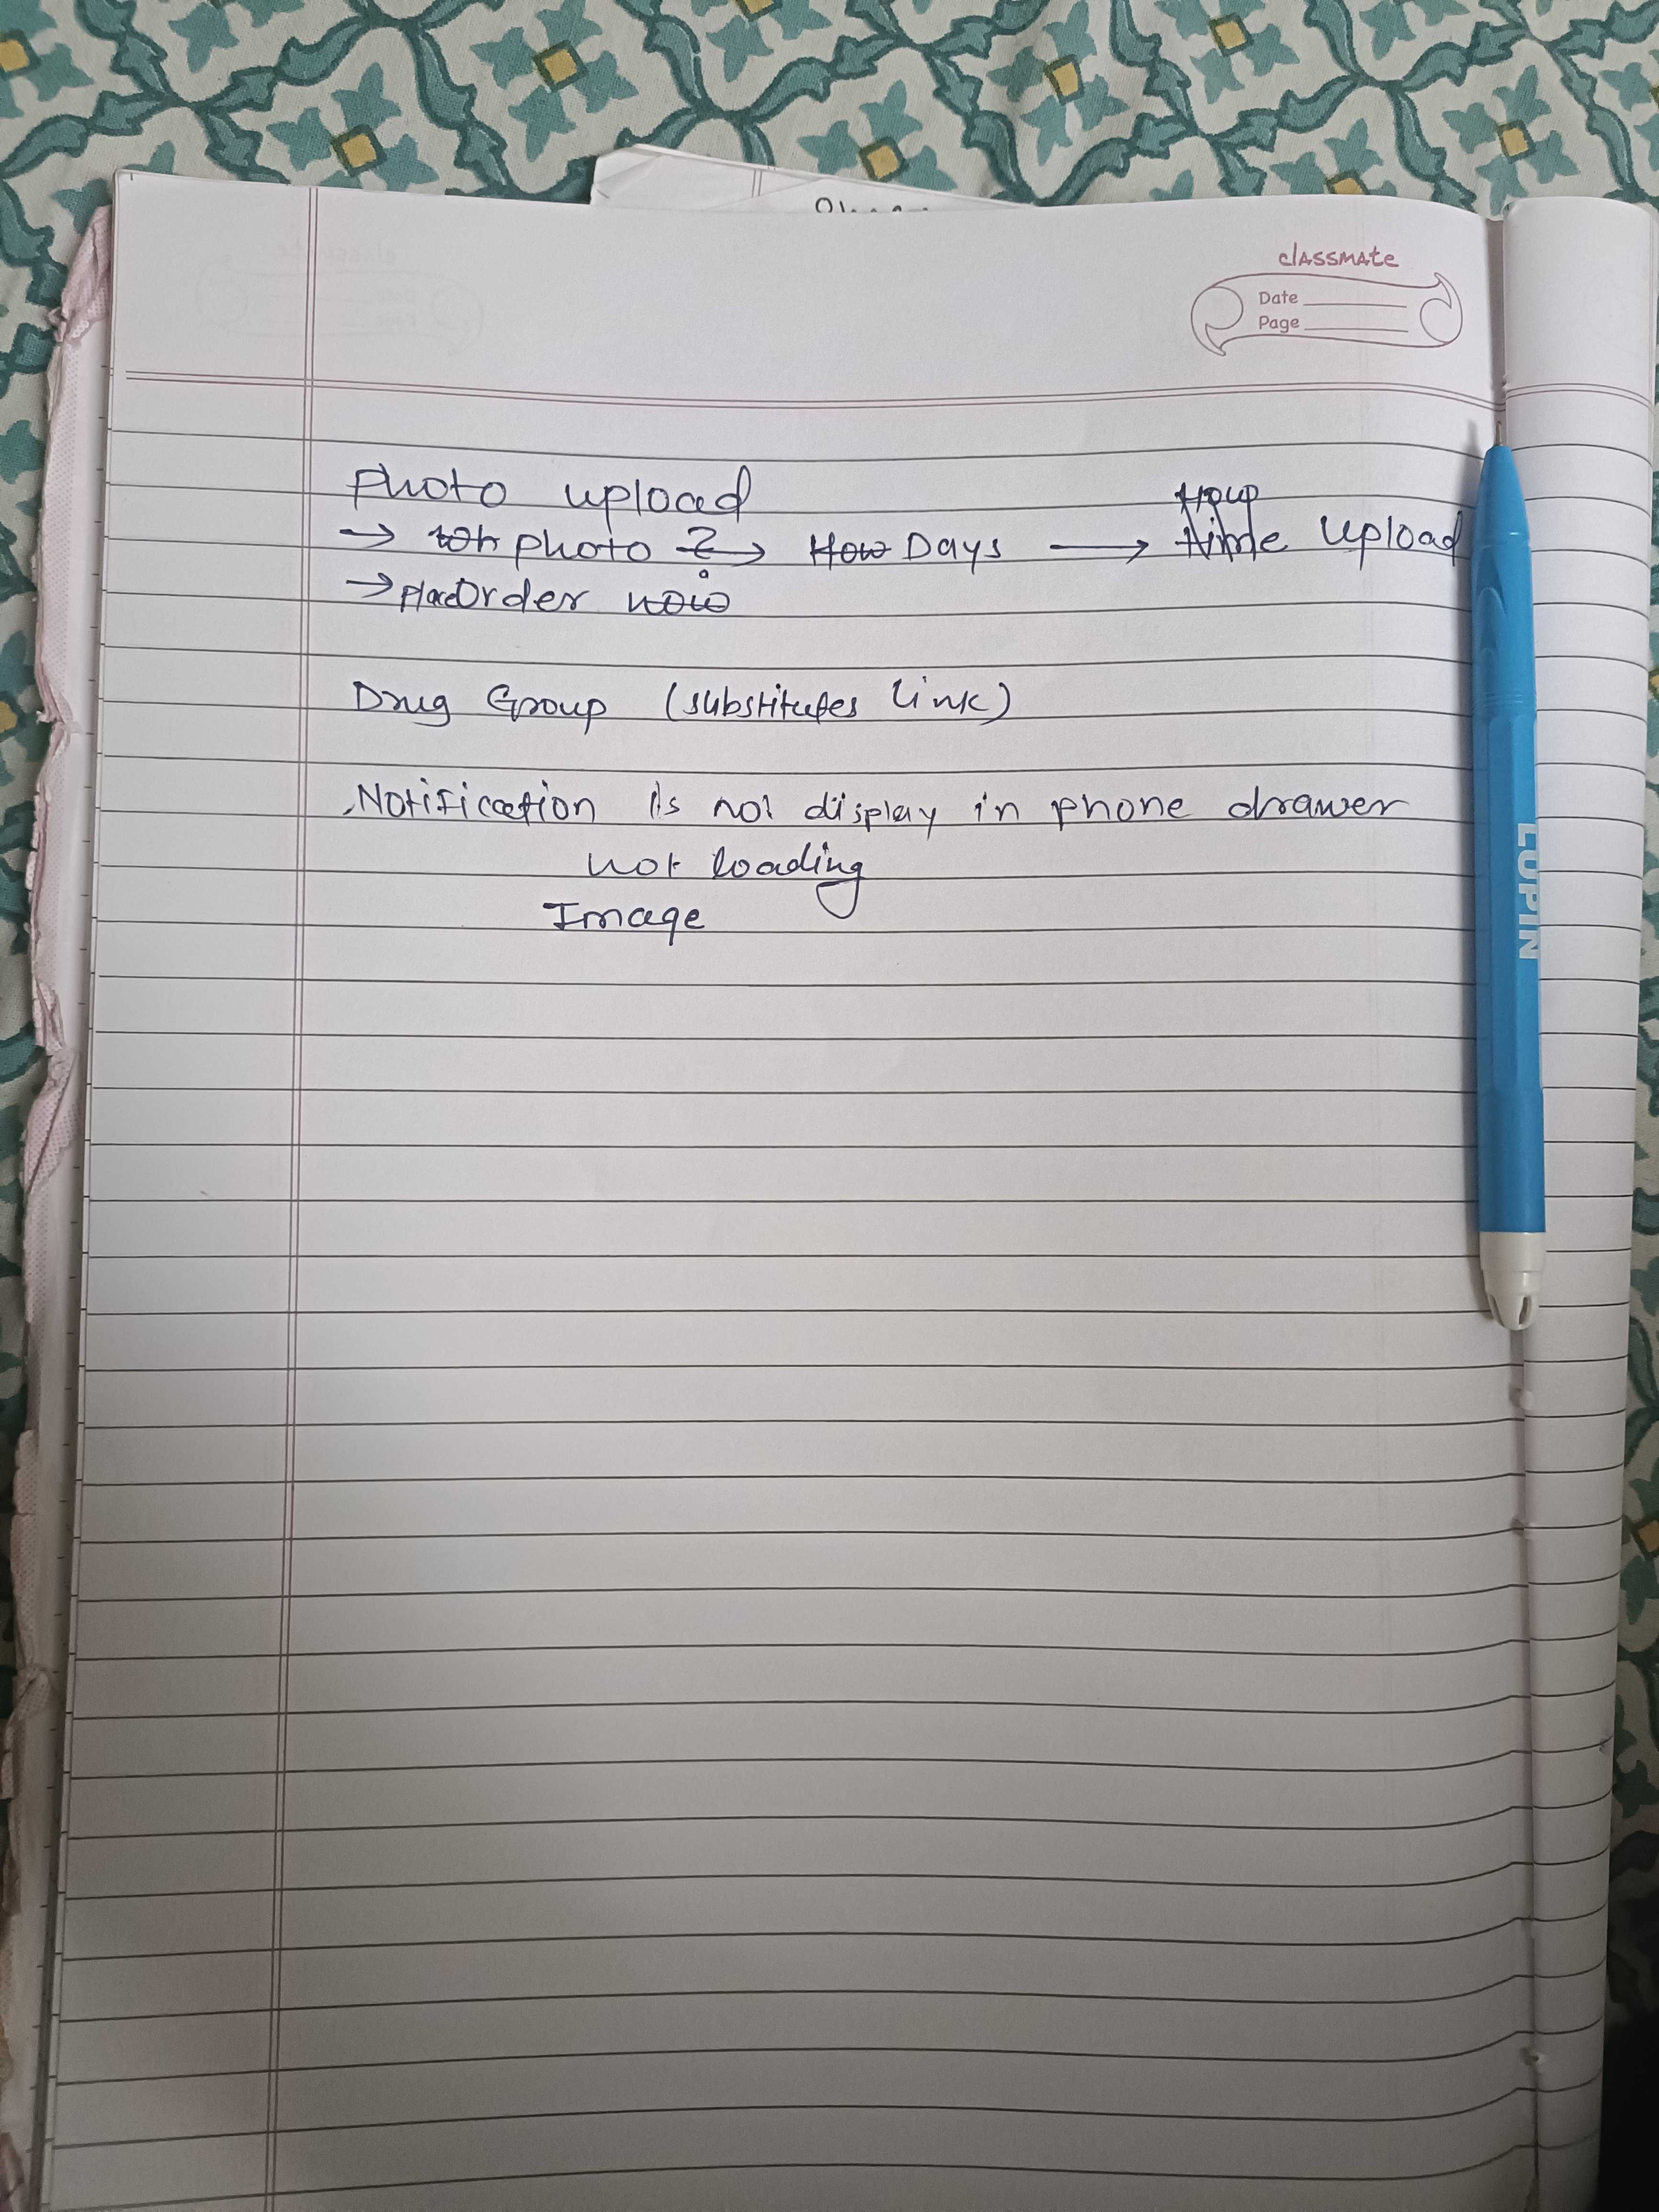 classmate
Date
Page
Photo upload
Hour
→ photo ? → How Days → Time Upload
→ Place Order now
Drug Group (substitutes link)
Notification is not display in phone drawer
not loading
Image
LUPIN